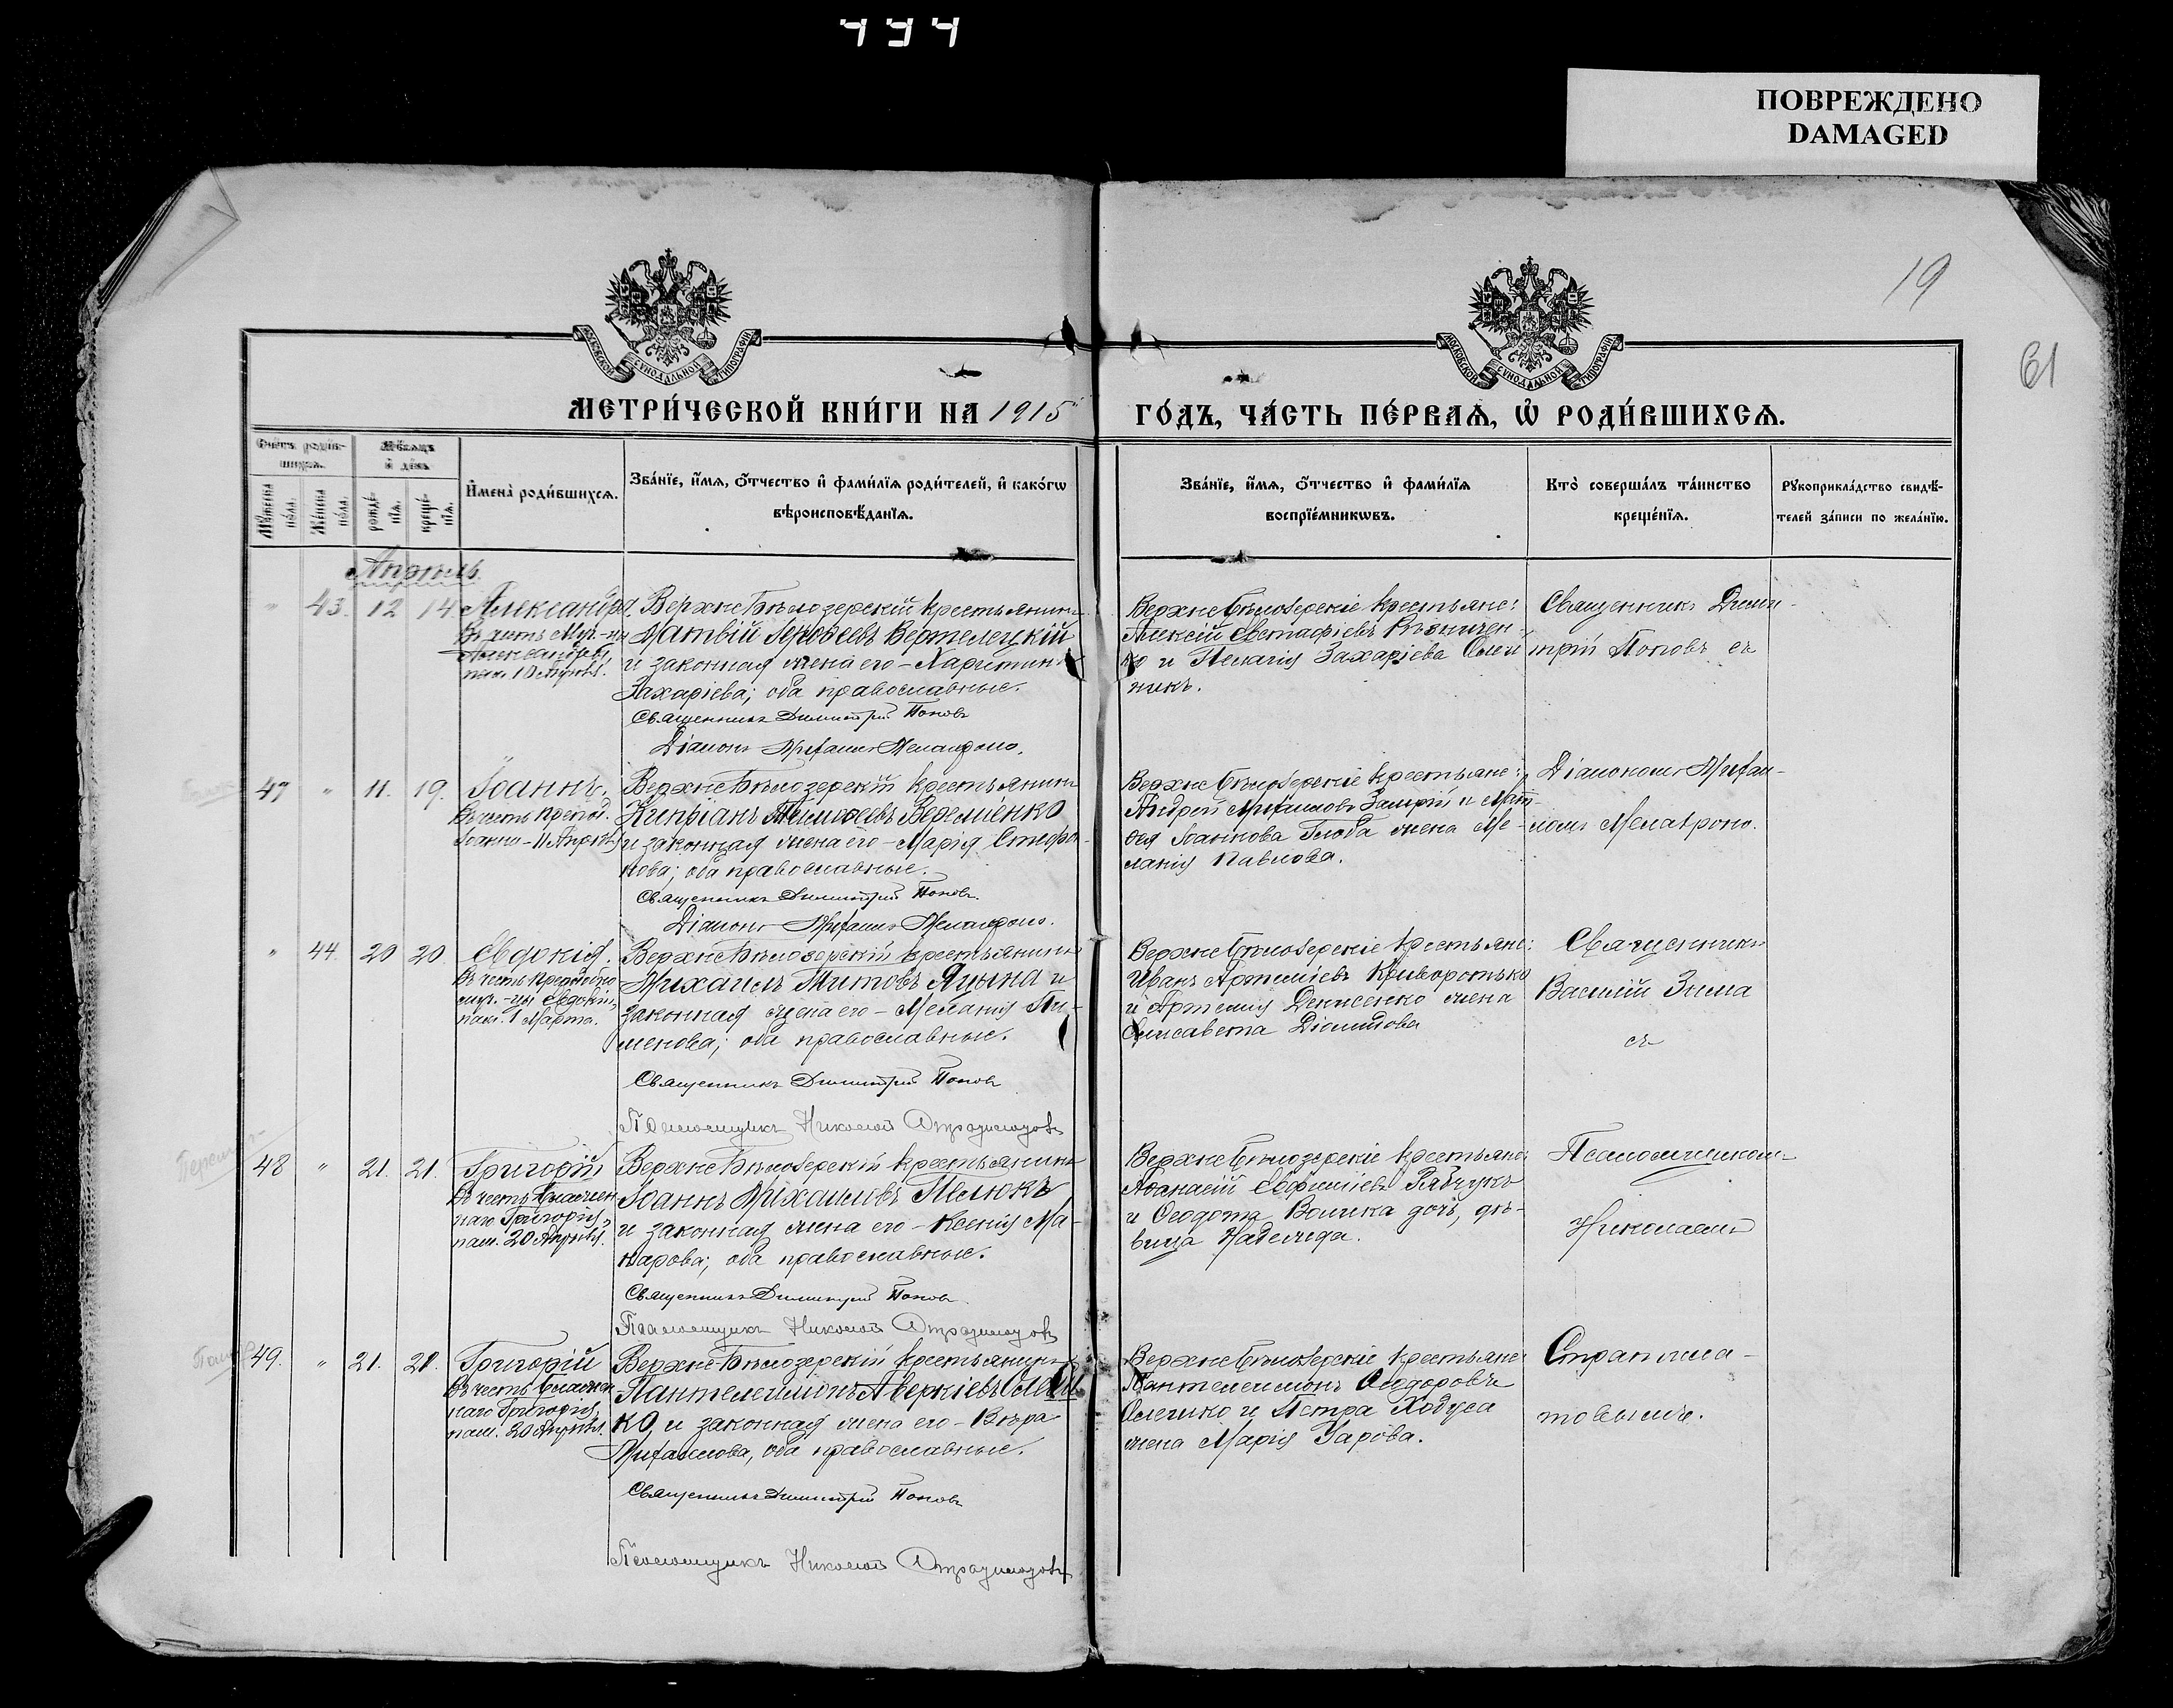 494
ПОВРЕЖДЕНО
DAMAGED
19
61
МЕТРИ́ЧЕСКОЙ КНИ́ГИ НА 1915
ГО́ДЪ, ЧА́СТЬ ПЕ́РВАѦ, Ѡ҆ РОДИ́ВШИХСѦ.
Сче́тъ роди́в-
шихсѧ.
Мѣ́сѧцъ
и҆ де́нь
Мꙋ́жеска
по́ла.
Же́нска
по́ла.
рожде́-
нїѧ.
креще́-
нїѧ.
И҆мена̀ роди́вшихсѧ.
Зва́нїе, и҆́мѧ, ѻ҆́тчество и҆ фами́лїѧ роди́телей, и҆ како́гѡ
вѣроисповѣ́данїѧ.
Зва́нїе, и҆́мѧ, ѻ҆́тчество и҆ фами́лїѧ
воспрїе́мникѡвъ.
Кто̀ соверша́лъ та́инство
креще́нїѧ.
Рꙋкоприкла́дство свидѣ́-
телей за́писи по жела́нїю.
Апрѣль
" 43. 12 14 Александра.
Въ честь Муч-цы
Александры,
пам. 10 Апрѣля.
Верхнебѣлозерскій крестьянинъ
Матвій Вертелецкій
и законная жена его - Харитина
Захаріева; оба православные.
Священникъ Димитрій Поповъ
Діаконъ Михаилъ
Верхнебѣлозерскіе крестьяне:
Алексій Евстафіевъ
и Пелагія Захаріева Олей
никъ.
Священникъ Дими-
трій Поповъ съ
47 " 11. 19. Іоаннъ.
Въ честь препод.
Іоанна - 11 Апрѣля
Верхнебѣлозерскій крестьянинъ
Кипріанъ Веремієнко
и законная жена его - Марія Стефа-
нова; оба православные.
Священникъ Димитрій Поповъ.
Діаконъ Михаилъ
Верхнебѣлозерскіе крестьяне:
Андрей Михаиловъ и Мат-
вея Іоаннова Глоба жена Ме-
ланія Павлова.
Діакономъ Михаи-
ломъ
" 44. 20 20. Евдокія.
Въ честь преподобно
муч.-цы Евдокіи,
пам. 1 Марта.
Верхнебѣлозерскій крестьянинъ
Михаилъ Титовъ Яцына и
законная жена его - Меланія Пи-
менова; оба православные.
Священникъ Димитрій Поповъ
Псаломщикъ Николай
Верхнебѣлозерскіе крестьяне:
Иванъ Артеміевъ Криворотько
и Артемія Денисенко жена
Елисавета Діомидова
Священникъ
Василій Зима
съ
48 " 21. 21. Григорій
Въ честь Блажен
наго Григорія,
пам. 20 Апрѣля.
Верхнебѣлозерскій крестьянинъ
Іоаннъ Михаиловъ Пелюхъ
и законная жена его - Ксенія Ма-
карова; оба православные.
Священникъ Димитрій Поповъ
Псаломщикъ Николай
Верхнебѣлозерскіе крестьяне:
Афанасій Евфиміевъ Рябчукъ
и Ѳеодота дочь, дѣ-
вица Надежда.
Псаломщикомъ
Николаемъ
49. " 21. 21. Григорій
Въ честь Блажен
наго Григорія,
пам. 20 Апрѣля.
Верхнебѣлозерскій крестьянинъ
Пантелеимонъ Аверкіевъ Олей
ко, и законная жена его - Вѣра
Михаилова, оба православные.
Священникъ Димитрій Поповъ
Псаломщикъ Николай
Верхнебѣлозерскіе крестьяне:
Пантелеимонъ Ѳеодоровъ
и Петра Ходуса
жена Марія Уарова.